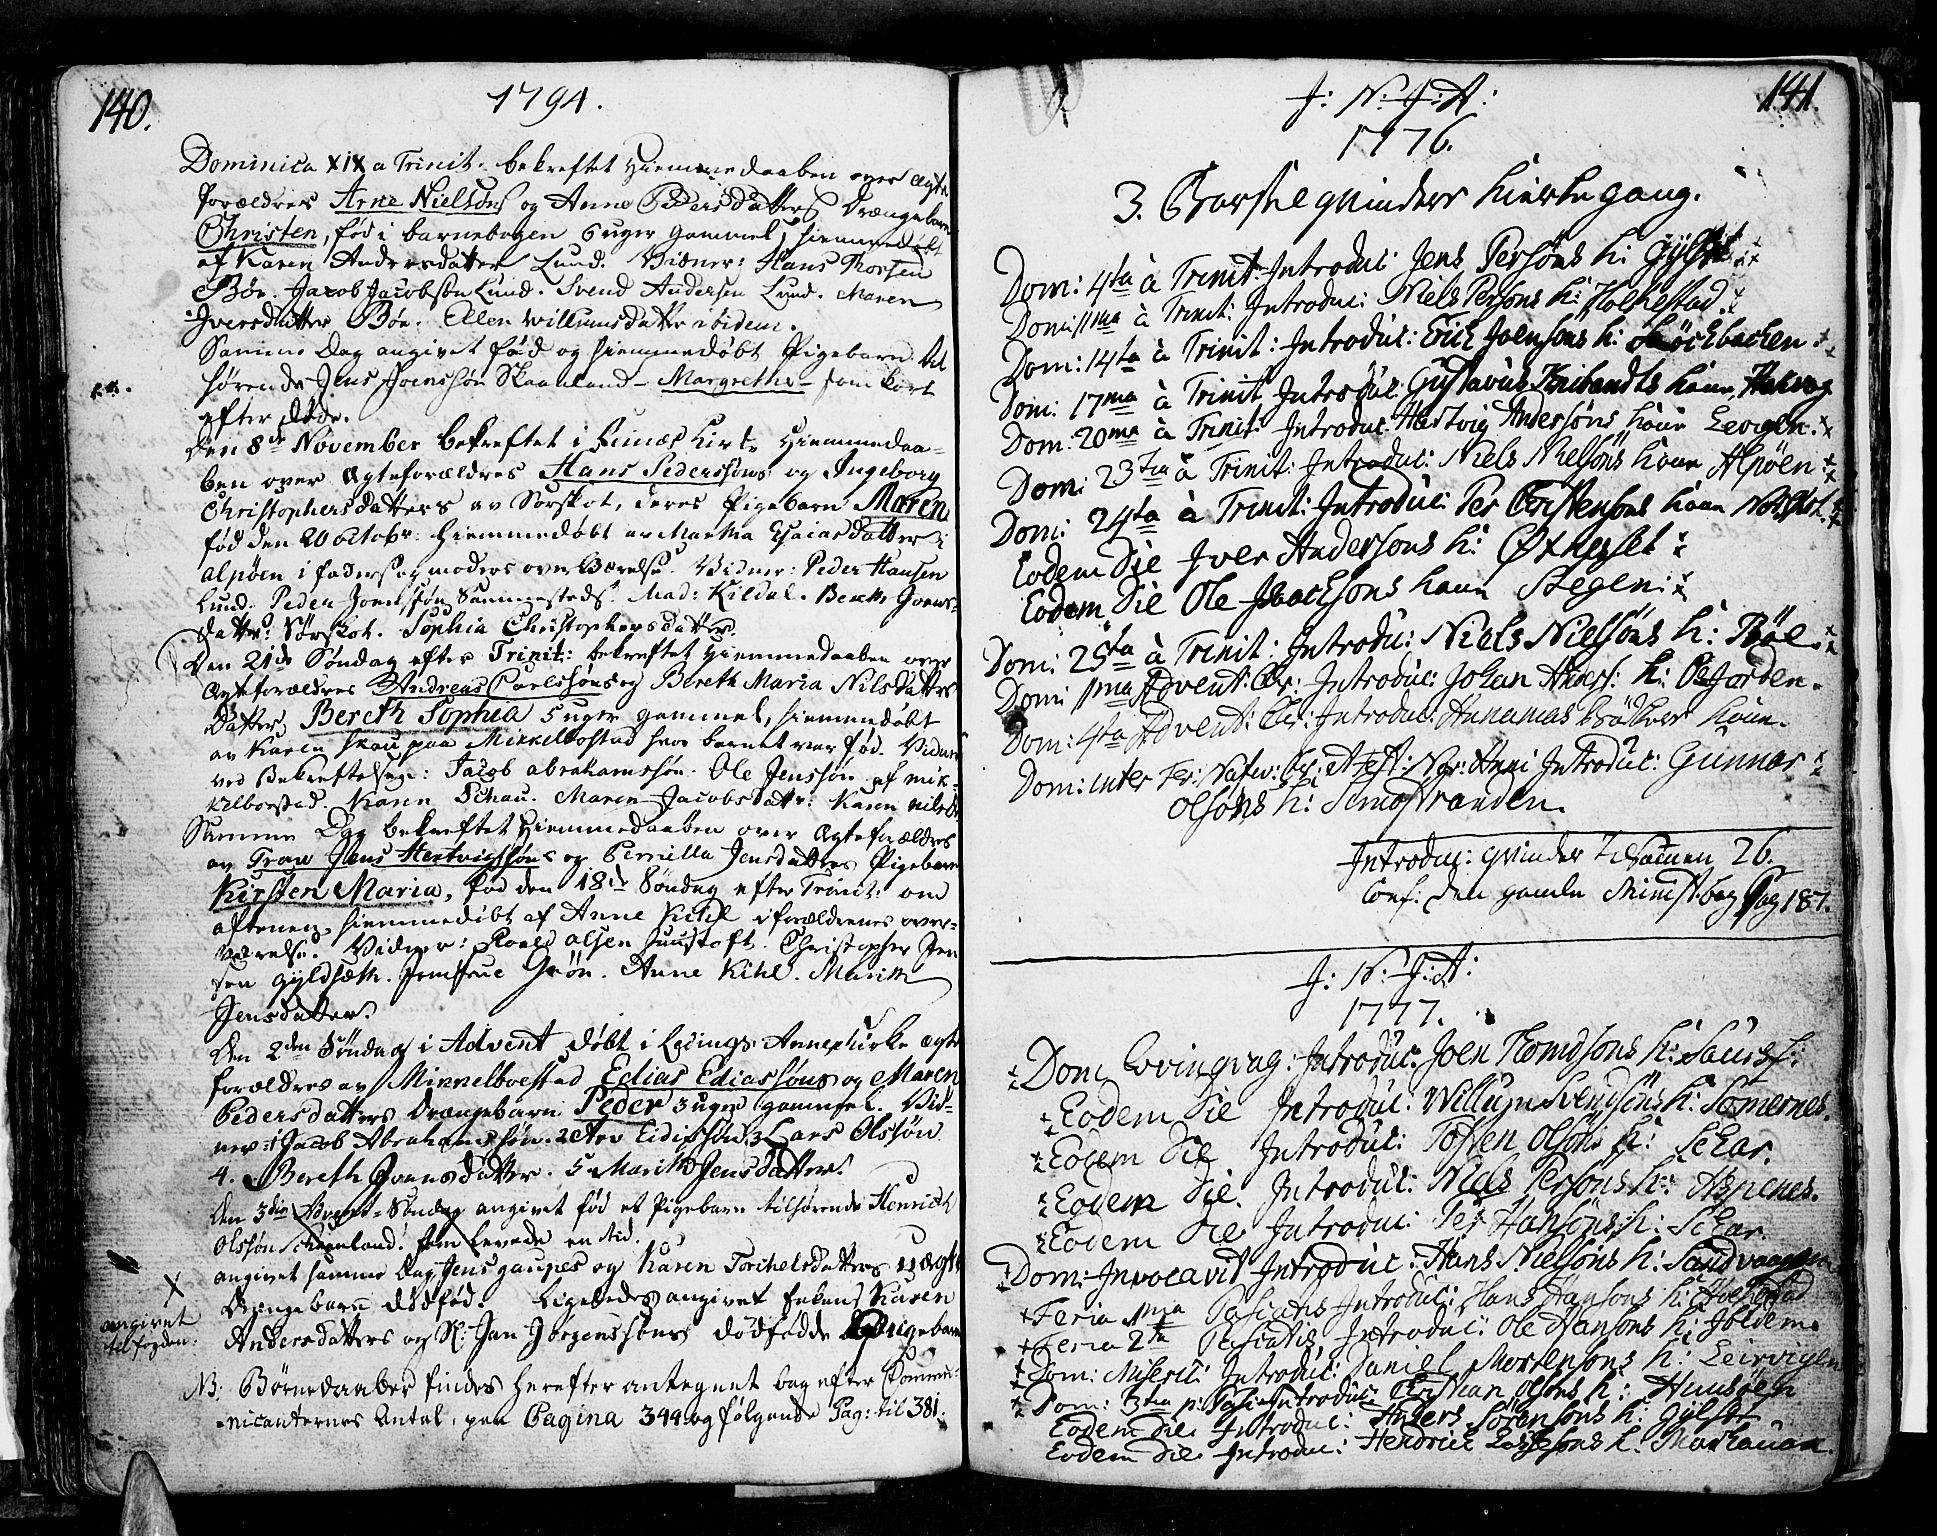 140.
1794.
Dominica XIX a Trinit. bekreftet Hiemmedaaben over ægte
forældres Arne Nielsøns og Anne Pedersdatters Drængebarn
Christen, fød i barnebogen 6 uger gammel, hiemmedøbt
af Karen Andersdatter Lund. Vidner: Hans Thorsen
Bøe. Jacob Jacobsøn Lund. Svend Andersen Lund. Maren
Iversdatter Bøe. Ellen Willumsdatter ibidem.
Samme Dag angivet fød og hiemmedøbt Pigebarn til
hørende Jens Joenssøn Skaanland - Margrethe - som kort
efter døde.
Den 8de November bekreftet i Evinæs Kirke Hiemmedaa-
ben over Ægteforældres Hans Pederssøns og Ingeborg
Christophersdatters av Sørskot, deres Pigebarn Maren
fød den 20 octobr. hiemmedøbt av Martha Esaiasdatter i
alpöen i faders og moders overværelse. Vidner: Peder Hansen
Lund. Peder Joenssøn Sammesteds. Mad: Kildal. Bereth Joens-
datter Sørskot. Sophia Christophersdatter.
Den 21de Søndag efter Trinit: bekreftet Hiemmedaaben over
Ægteforældres Andreas Carlssøns og Bereth Maria Nilsdatters
datter Bereth Sophia 5 uger gammel, hiemmedøbt
av Karen Skau paa Mikkelbostad hvor barnet var fød. Vidner
ved Bekreftelsen: Jacob abrahamssøn. Ole Jenssøn af mik-
kelborstad. Karen Schau. Maren Jacobsdattr: Karen nilsdt
Samme Dag bekreftet Hiemmedaaben over Ægteforældres
av Tran Jens Hertvigssøns og Pernilla Jensdatters Pigebarn
Kirsten Maria, fød den 18de Søndag efter Trinit: om
aftenen, hiemmedøbt af Anne Kihl i forældrenes over-
værelse. Vidner: Roald olsen Huustoft. Christopher Jen
sen Gyldsæth. Jomfrue Grøn. Anne Kihl. Marith
Jensdatter.
Den 2den Søndag i Advent døbt i Evinges Annexkirke ægte
forældres av Mikkelboestad Edias Ediassøns og Maren
Pedersdatters Drængebarn Peder 3 uger gammel. Vid-
ner: 1 Jacob Abrahamssøn. 2 Arv Eidissøn 3 Lars Olssøn
4. Bereth Joensdatter. 5 Marith Jensdatter.
Den 3die Advent-Søndag angivet fød et Pigebarn tilhørende Henrich
Olssøn Skaanland! som levede en tid.
angivet samme Dag Jens gaupes og Karen Torchelsdatters uægte
Drængebarn dødfød. Ligeledes angivet Enken Karen
X
angivet
til fogden.
Andersdatters og Sl: Jan Jørgenssøns dødfødde Pigebarn
NB: Børnedaaber findes herefter antegnet bag efter Commu-
nicanternes Antal, paa Pagina 344 og følgende Pag: til 381.
141.
J: N: J: A:
1776.
3. Barselqvinders kierke gang.
Dom: 4ta à Trinit: Introduc: Jens Persøns h: Gylset
Dom: 11ma à Trinit: Introduc: Niels Persøns h: Holkestad
Dom: 14ta à Trinit: Introduc: Erich Joensøns h: Støchbachen
Dom: 17ma à Trinit Introduc: Gustavus Kribandts kone, Hakvog
Dom: 20ma à Trinit: Introduc: Hartvig Andersøns kone Levigen.
Dom: 23tia à Trinit: Introduc: Niels Nielsøns kone Alpöen
Dom: 24ta à Trinit: Introduc: Per Christensøns kone
Eodem Die Iver Andersøns h: Øxneset
Eodem Die Ole Isachsøns kone Stegen
Dom: 25ta à Trinit: Introdu: Niels Nielsøns h: Bøe
Dom: 1ma Advent: Chr: Introduc: Johan Anders: h: Offorden.
Dom: 4ta Advent: Chr: Introduc: Ananias kone.
Dom: inter Fer: Nativ: Chr: et Fest: Nov: Anni Introduc: Gunnar
Olsøns h: Simostranden.
Introduc: qvinder Tilsamen 26.
Conf: den gamle Minist. bog Pag 187.
J: N: J: A:
1777.
Dom Introduc: Joen Tomsøns h:
Eodem Die Introduc: Willum Svendsøns h: Somernes.
Eodem Die Introduc: Tosten Olsøns h: Schar.
Eodem Die Introduc: Niels Persøns h: Aspenes.
Eodem Die Introduc: Per Hansøns h: Schar.
Dom: Invocavit Introduc: Hans Nielsøns h: Sandvaagen
Feria 1ma Paschatis Introduc: Hans Hansøns h: Holkestad
Feria 2da Paschatis Introduc: Ole Hansøns h: Ibidem.
Dom: Miseric: Introduc: Daniel Mortensøns h: Leirvigen
Dom: 3tia p: Pasc: Introduc: Christian Olsøns h: Hunsöen
Eodem Die Introduc: Anders Sörensøns h: Gylset
Eodem Die Introduc: Hendrich Lassesøns h: